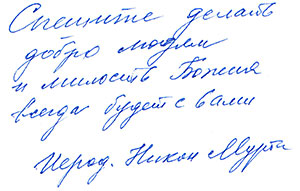 Спешите делать
добро людям
и милость Божия
всегда будет с Вами
Иерод. Никон Мурта